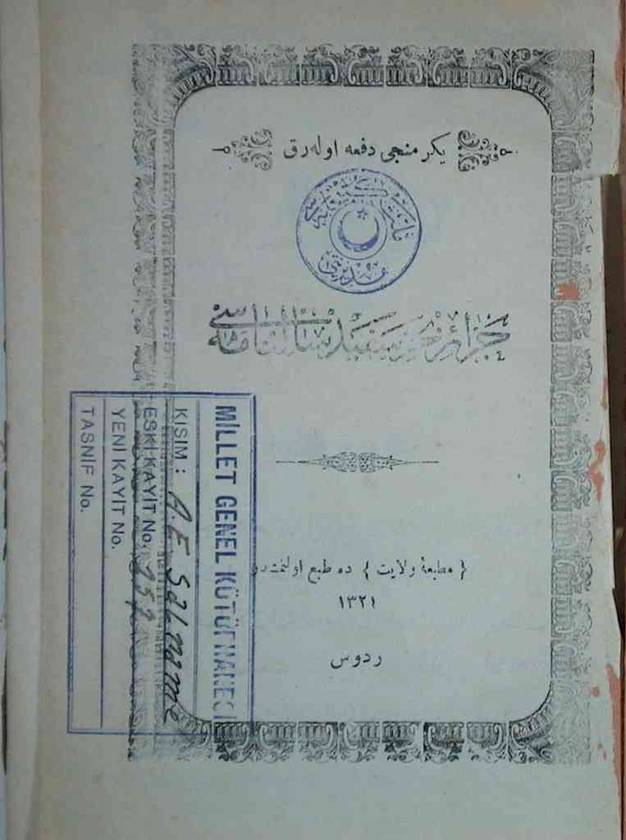 یکرمنجی دفعه اوله‌رق
ملت کتبخانه‌سی
مدیریتی
جزائر بحر سفید سالنامه‌سی
﴿ مطبعهٔ ولایت ﴾ ده طبع اولنمشدر
١٣٢١
ردوس
MİLLET GENEL KÜTÜPHANESİ
KISIM : A.E Salname
ESKİ KAYIT No.
YENİ KAYIT No.
TASNİF No.